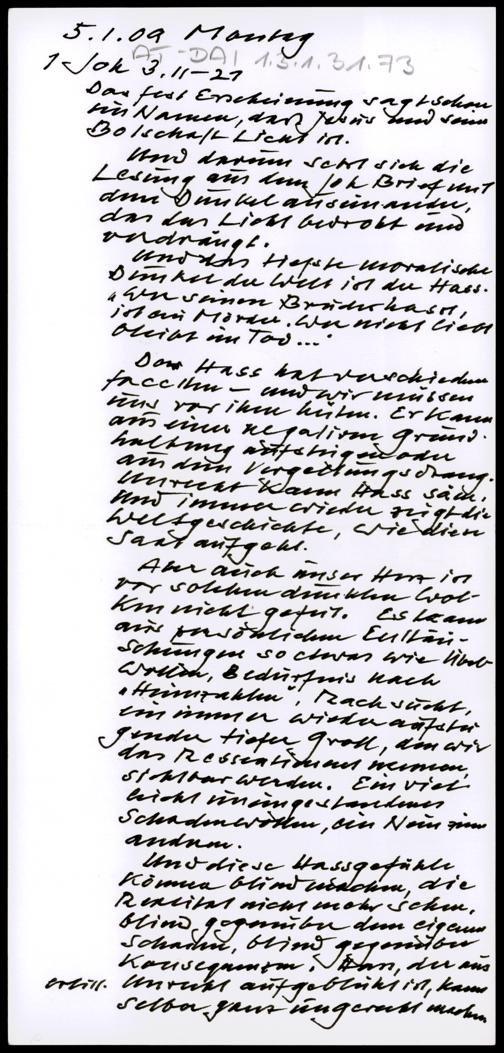 5.1.09 Montag
AT-DAI 1.3.1.31.73
1 Joh 3.11-21
Das fest Erscheinung sagt schon
im Namen, daß Jesus und seine
Botschaft Licht ist.
Und darum setzt sich die
Lesung aus dem Joh Brief mit
dem Dunkel auseinander,
das das Licht bedroht und
verdrängt.
Und das tiefste moralische
Dunkel der Welt ist der Hass.
"Wer seinen Bruder hasst,
ist ein Mörder. Wer nicht liebt
bleibt im Tod..."
Der Hass hat verschiedene
facetten - und wir müssen
uns vor ihm hüten. Er kann
aus einer negativen Grund-
haltung aufsteigen oder
aus dem Vergeltungsdrang.
Unrecht kann Hass säen,
und immer wieder zeigt die
Weltgeschichte, wie diese
Saat aufgeht.
Aber auch unser Herz ist
vor solchen dunklen Wol-
ken nicht gefeit. Es kann
aus persönlichen Enttäu-
schungen so etwas wie Übel-
wollen, Bedürfnis nach
"Heimzahlen", Rachsucht,
ein immer wieder aufstei-
gender tiefer Groll, den wir
das Ressentiment nennen,
sichtbar werden. Ein viel-
leicht uneingestandenes
Schadenwollen, ein Nein zum
andern.
Und diese Hassgefühle
können blind machen, die
Realität nicht mehr sehen,
blind gegenüber dem eigenen
Schaden, blind gegenüber
Konsequenzen. Hass, der aus
erlitt. Unrecht aufgeblüht ist, kann
selber ganz ungerecht machen